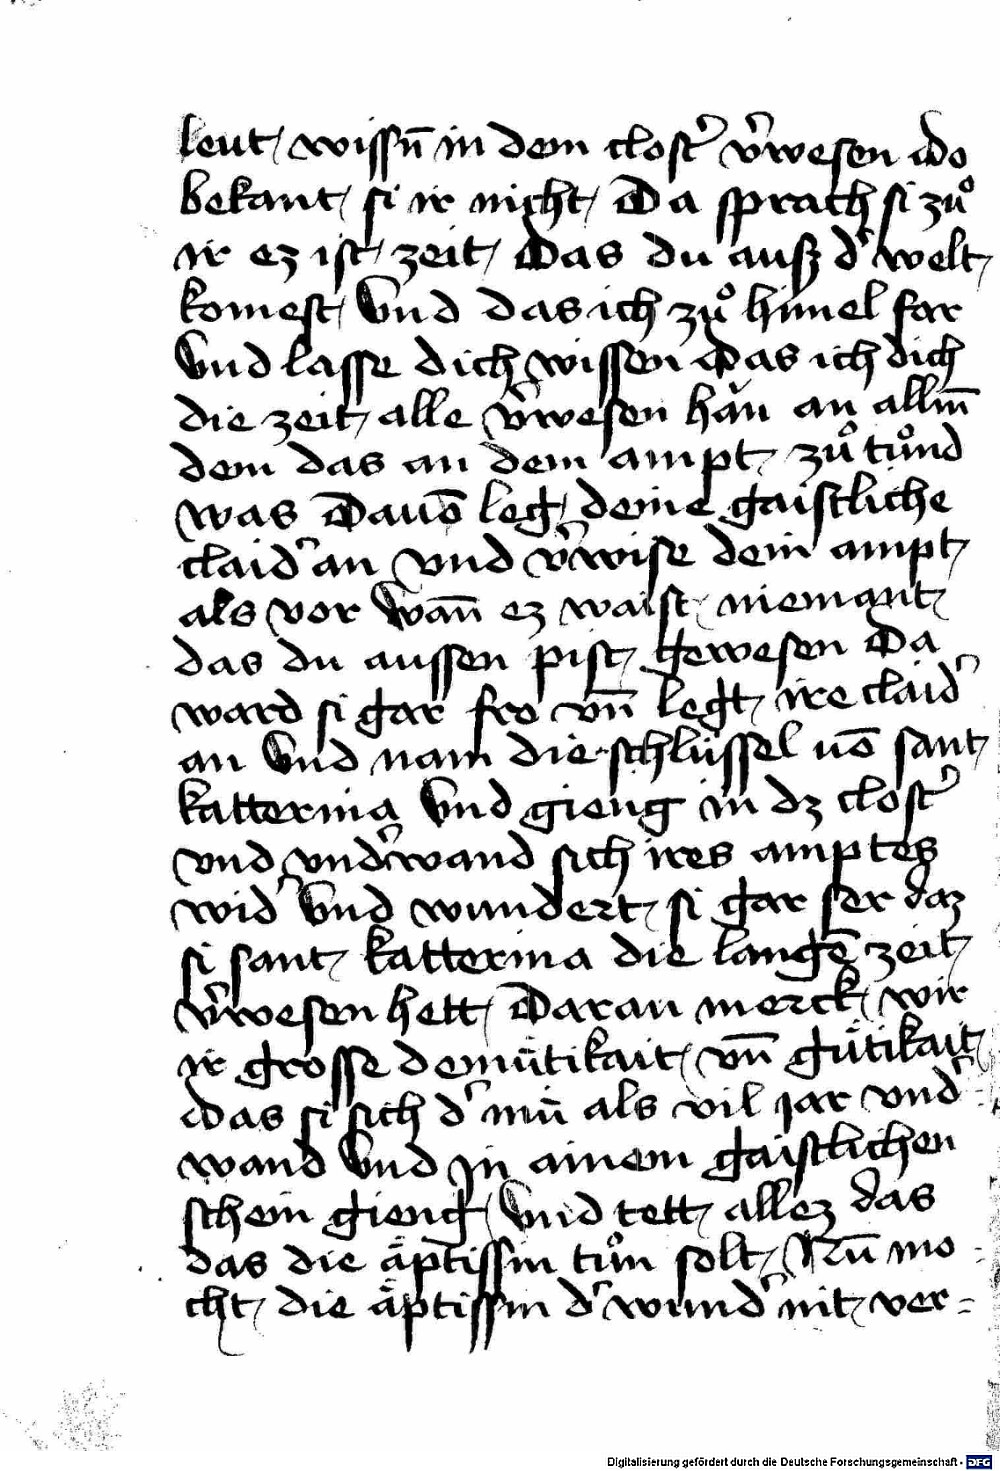 leut wissn̄ in dem clost᷑ v᷑wesen Do
bekant si ir nicht Da sprach si zuͦ
ir ez ist zeit Das du auß d᷑ welt
komest Vnd das ich zuͦ himel far
Vnd lasse dich wissen Das ich dich
die zeit alle v᷑wesen hăn an allm̄
dem das an dem ampt zuͦ tuͦnd
was Dauō leg deine gaistliche
claid᷑ an vnd v᷑wise dein ampt
als vor Wan̄ ez waist niemant
das du aussen pist gewesen Da
ward si gar fro vn̄ legt ire claid᷑
an Vnd nam die schlüssel uō sant
katterina Vnd gieng in dz clost᷑
vnd vnd᷑wand sich ires amptes
wid᷑ Vnd wundert si gar ser daz
si sant katterina die langē zeit
v᷑wesen hett Daran merck wir
ir grosse demütikait vn̄ gütikait
Das si sich d᷑ mü als vil jar vnd᷑
wand Vnd in ainem gaistlichen
schein gieng Vnd tett allez das
das die äptissin tuͦn solt Nū mo
cht die äptissin d᷑ wund᷑ nit ver=
Digitalisierung gefördert durch die Deutsche Forschungsgemeinschaft - DFG